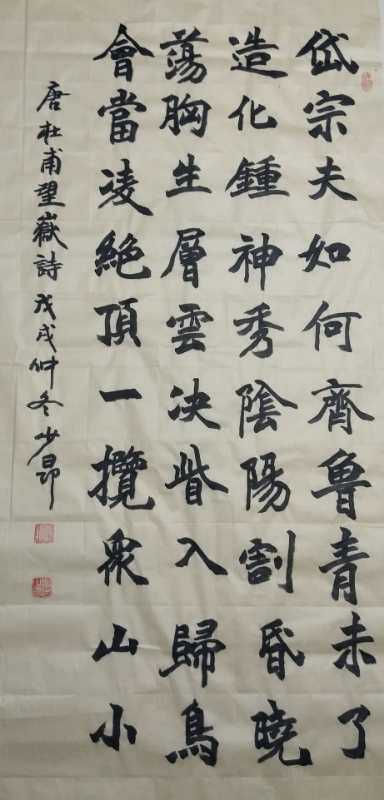 岱宗夫如何齊魯青未了
造化鍾神秀陰陽割昏曉
蕩胸生層雲决眥入歸鳥
會當凌絕頂一攬衆山小
唐杜甫望嶽詩戊戌仲冬少昂